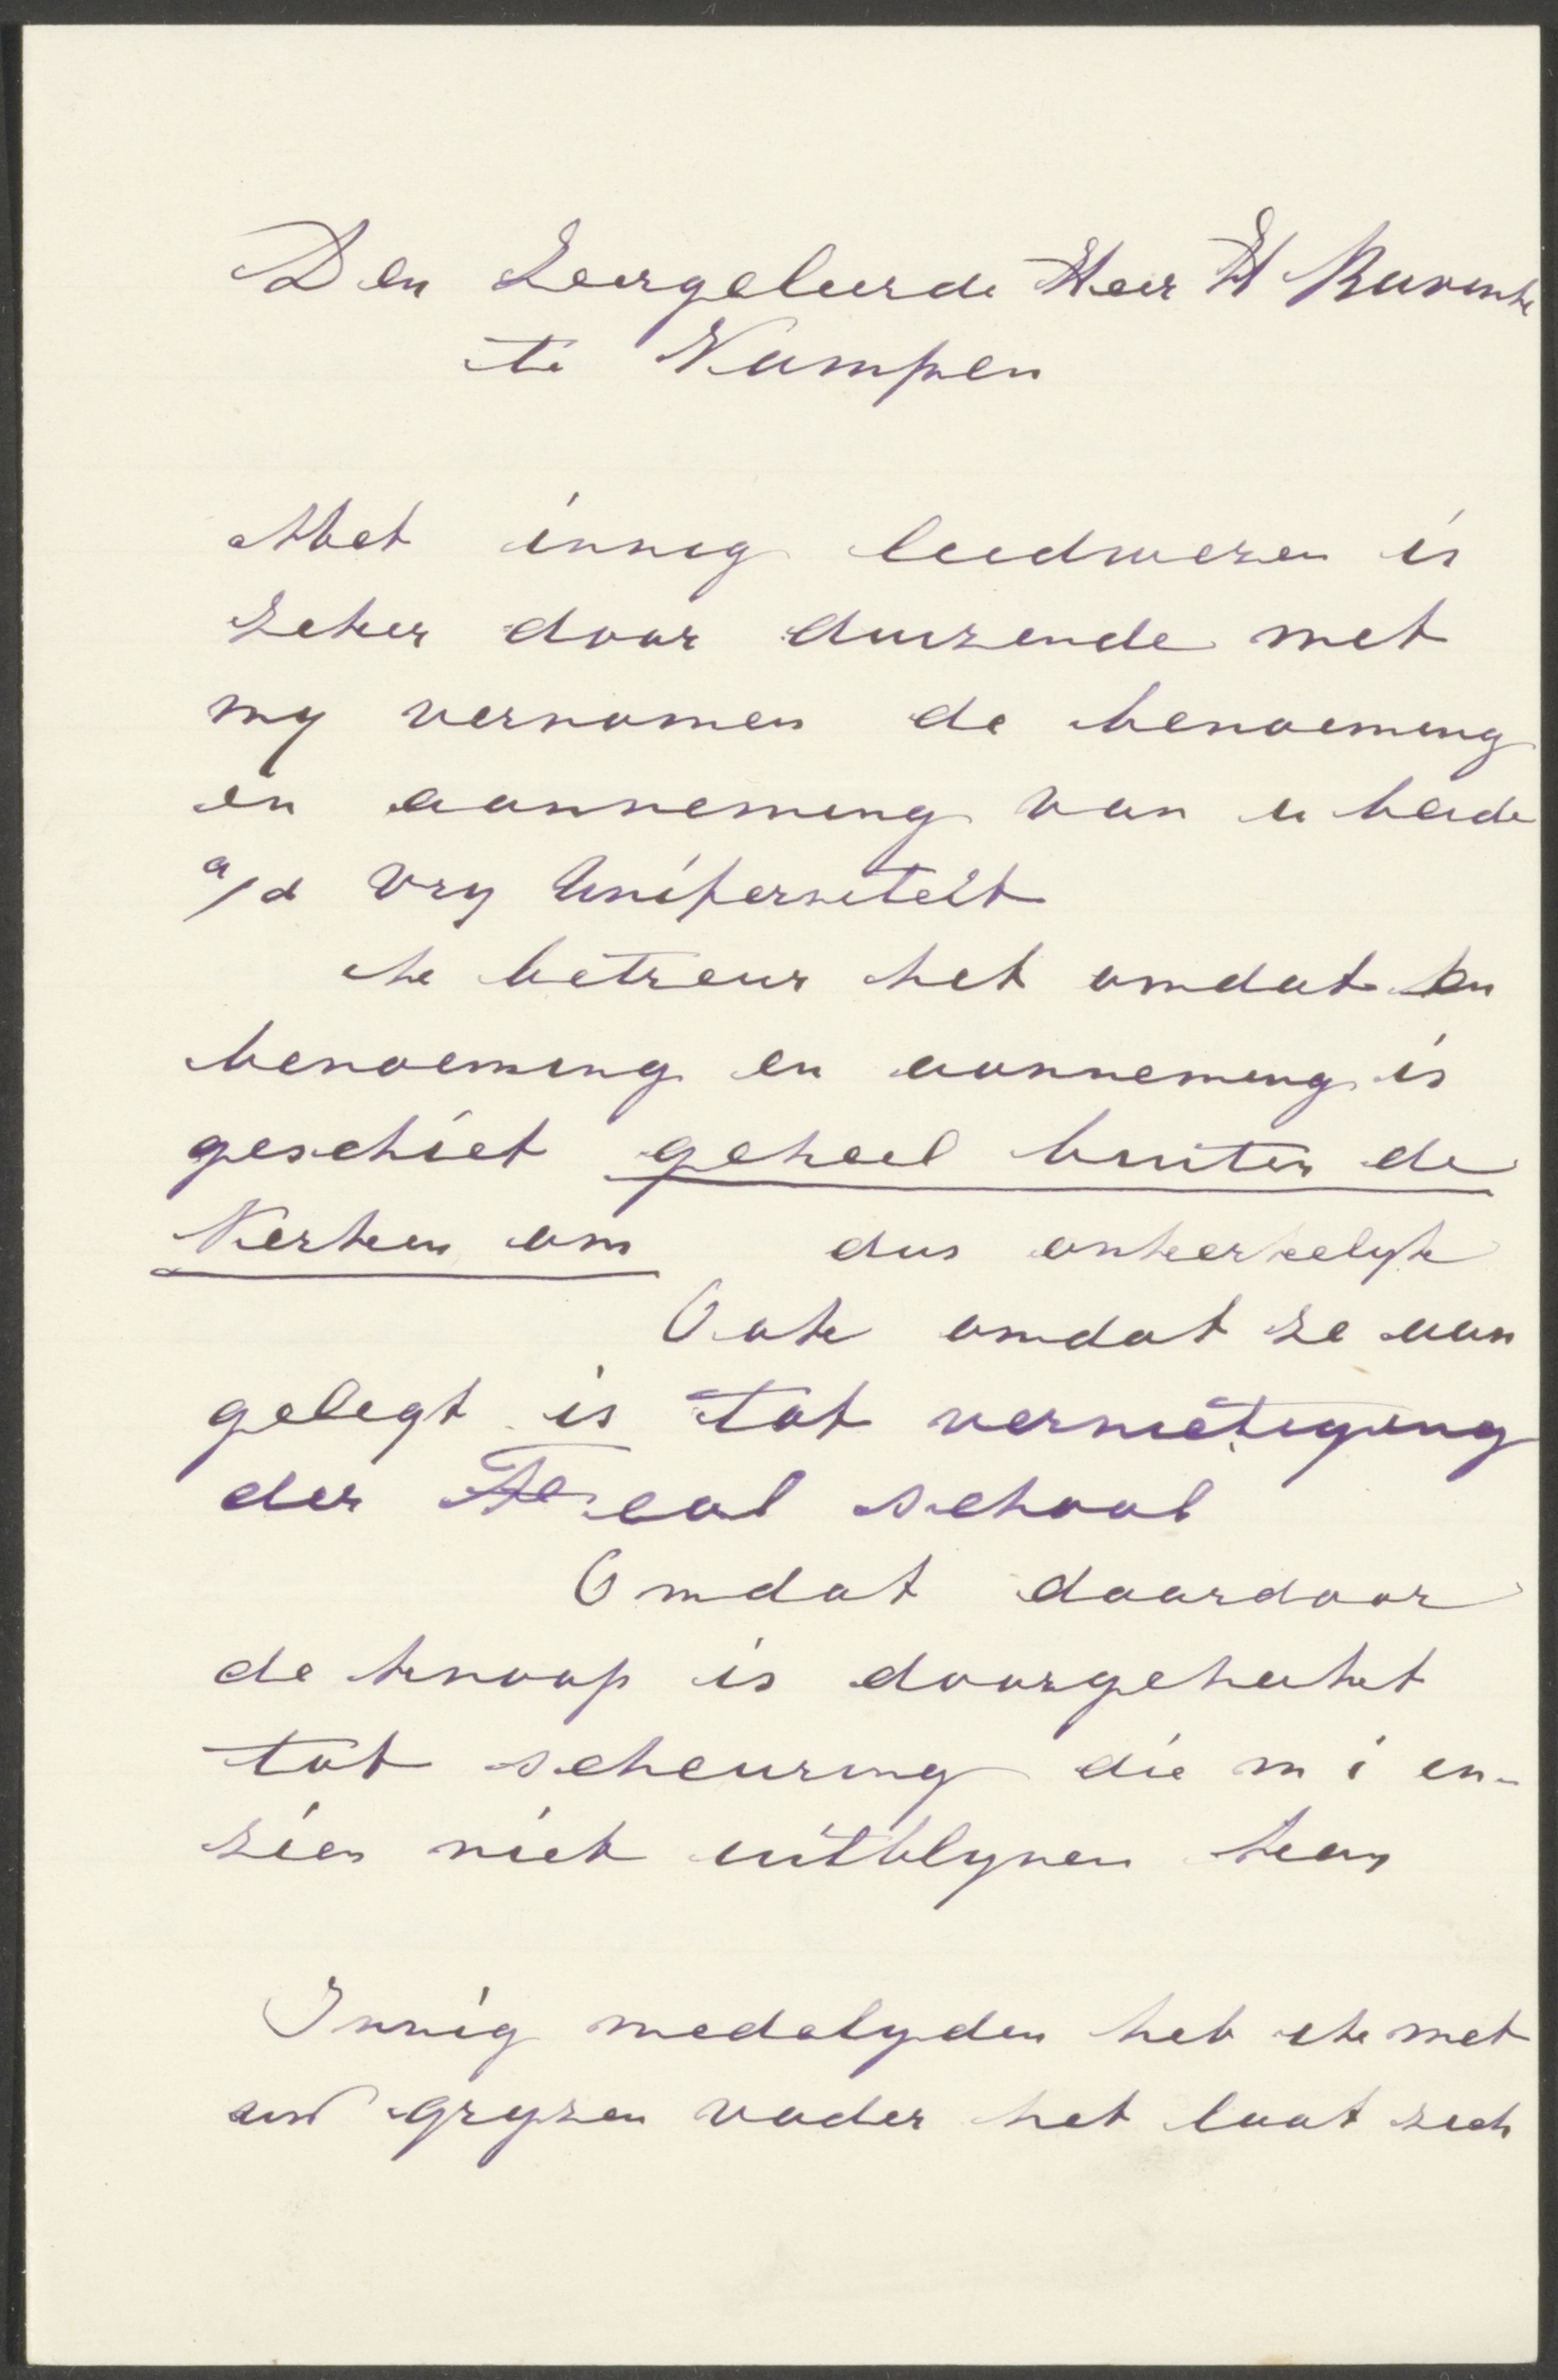 Den Zeergeleerde Heer H Bavink
te Kampen
Met innig leedwezen is
zeker door duizende met
my vernomen de benoeming
en aanneming van u beide
a/d Vry Unifersiteit
ik betreur het omdat en
benoeming en aanneming is
geschiet geheel buiten de
Kerken om dus onkerkelyk
Ook omdat ze aan
gelegt is tot vernietiging
der Theol school
Omdat daardoor
de knoop is doorgehakt
tot scheuring die m i en-
zien niet uitblyven kan
Innig medelyden heb ik met
uw gryzen vader het laat zich